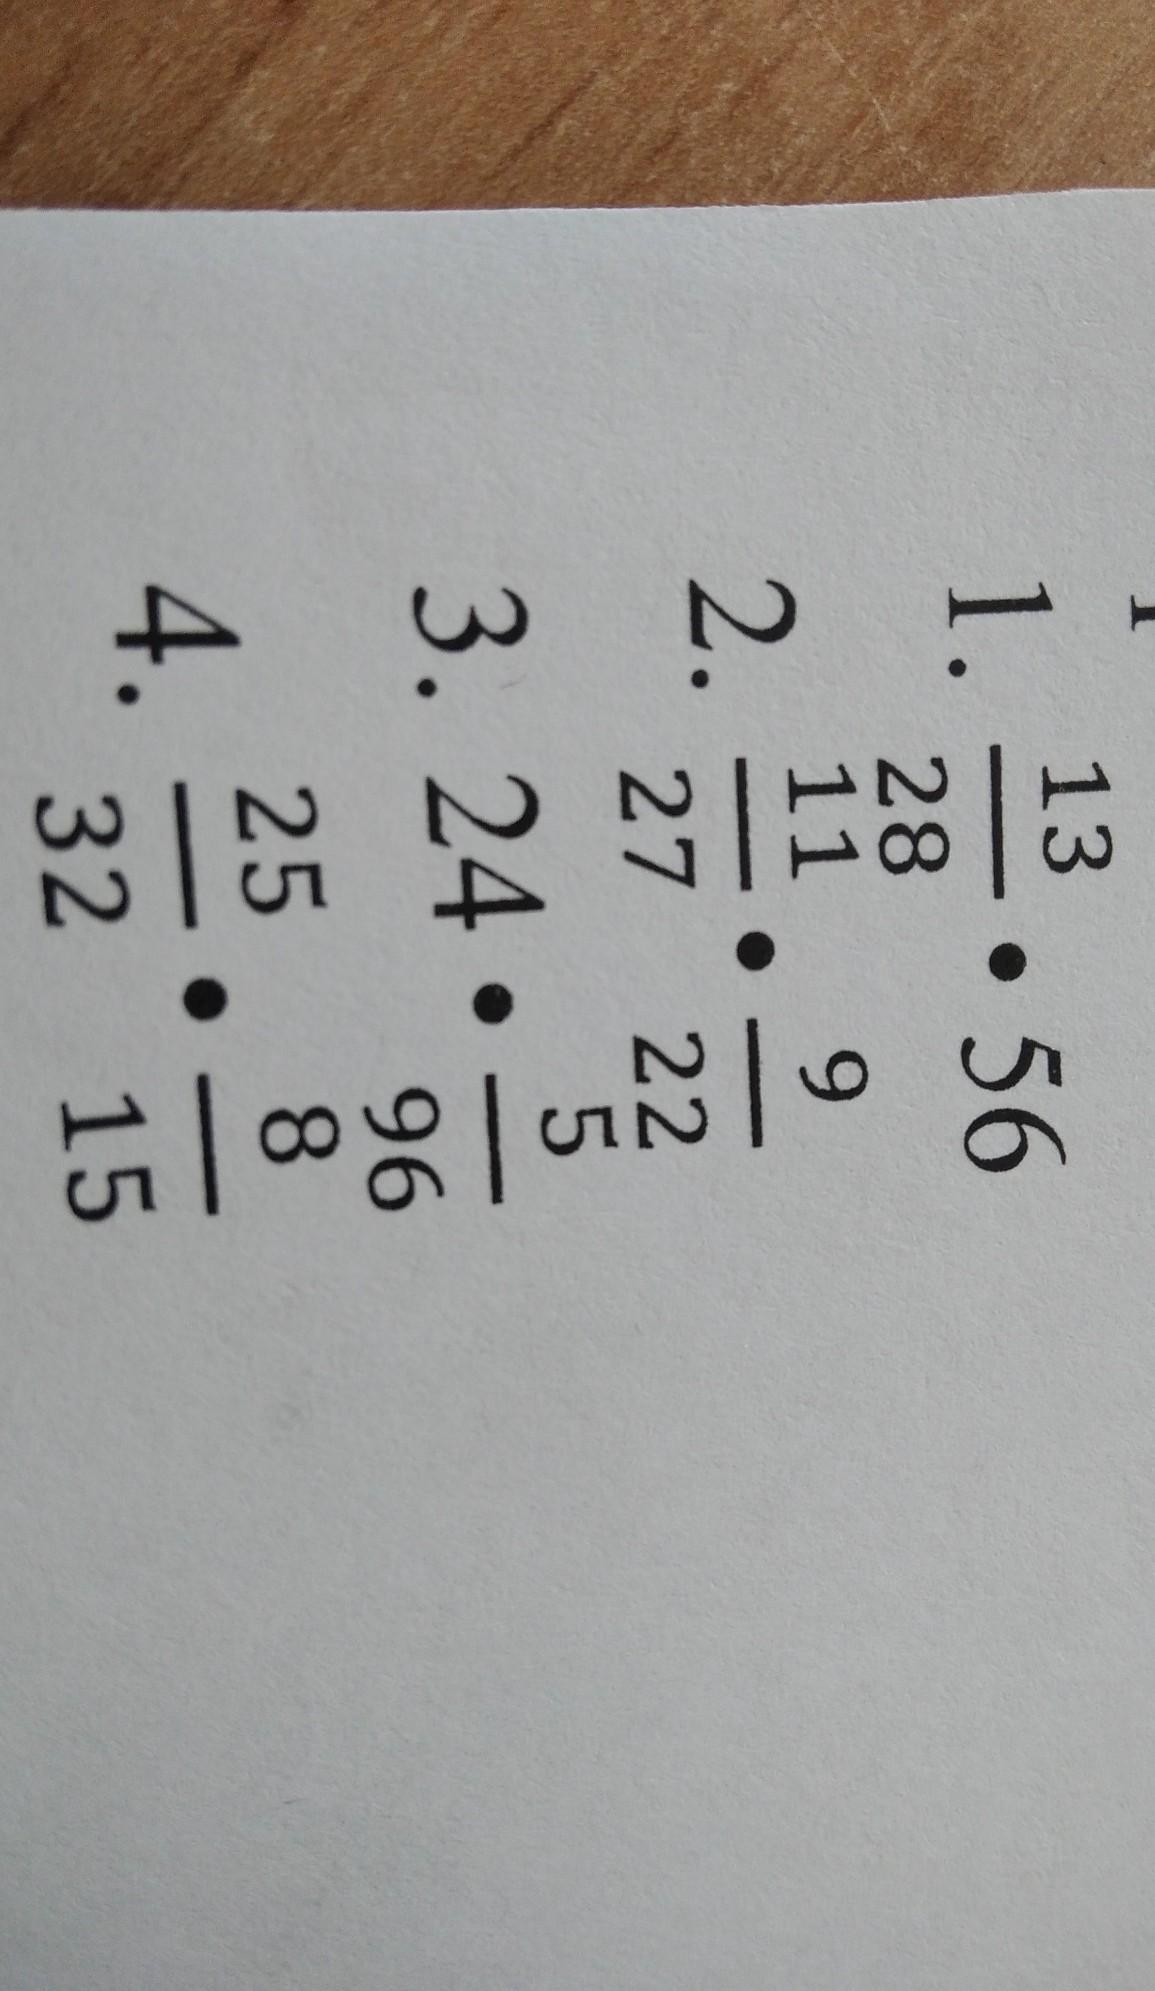 1. 13/28 • 56
2. 11/27 • 9/22
3. 24 • 5/96
4. 25/32 • 8/15